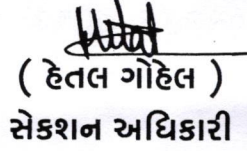 ( હેતલ ગોહેલ )
સેકશન અધિકારી